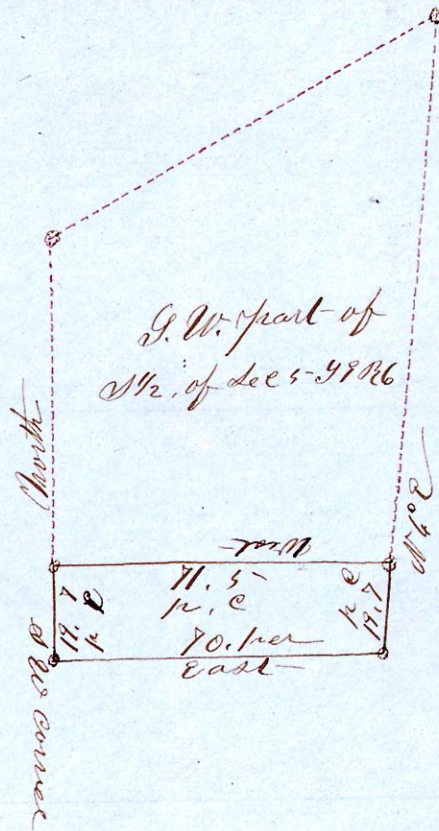 S. W. part of
S 1/2, of Sec 5 T9 R6
North
West
71.5
p. C
N 4° E
19.7
p C
19.7
p C
70. per
East
S W Corner